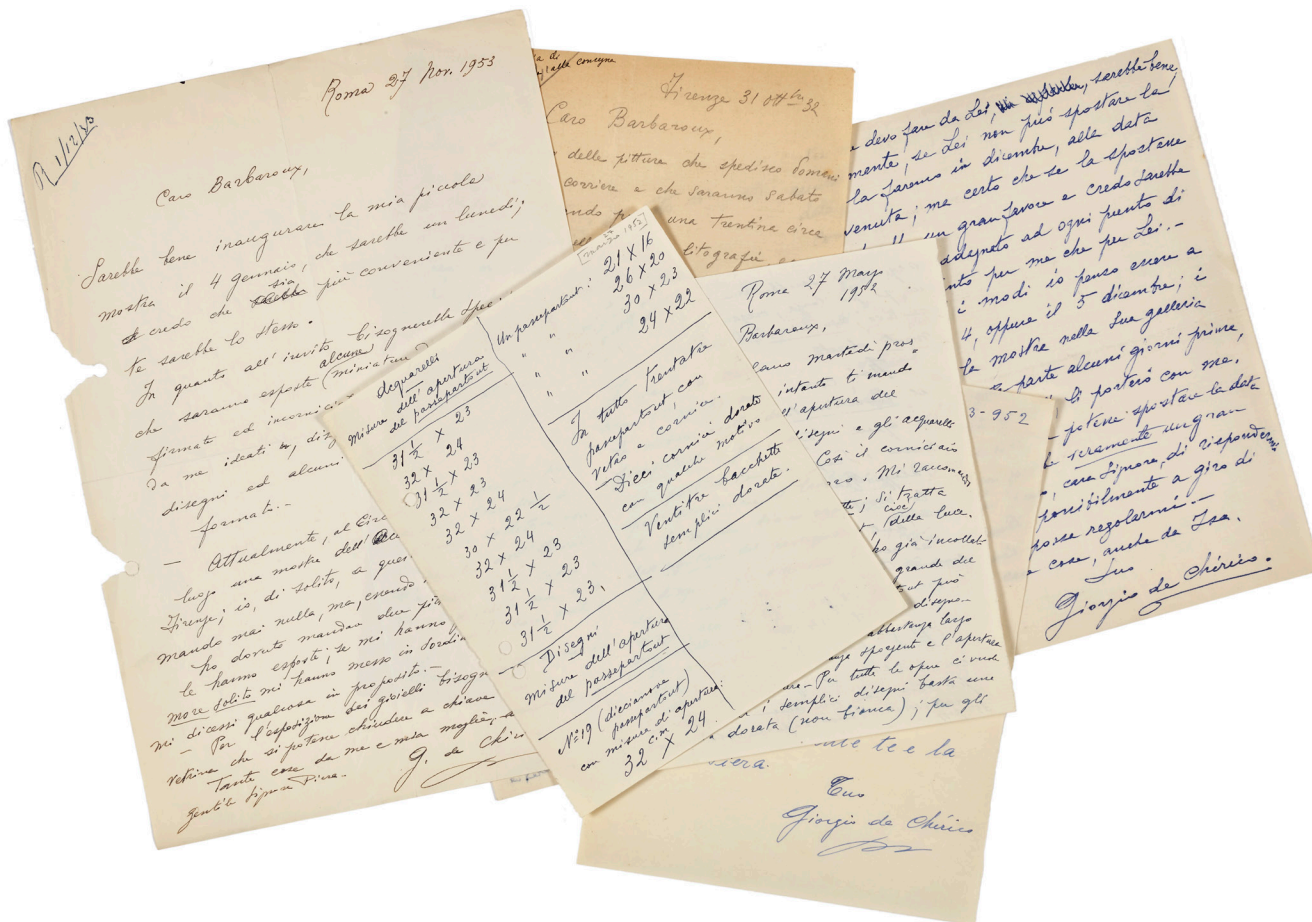 Roma 27 Nov. 1953
R 1/12/53
Caro Barbaroux,
Sarebbe bene inaugurare la mia piccola
mostra il 4 gennaio, che sarebbe un lunedì;
credo che sia più conveniente e per
te sarebbe lo stesso.
In quanto all' invito bisognerebbe
che saranno esposte alcune (miniature
firmati ed incornicia
da me ideati
disegni ed alcuni
formato.-
— Attualmente, al Circ
luogo una mostra dell'
Firenze; io, di solito, a ques
mando mai nulla, ma, essendo
ho dovuto mandar due
le hanno esposti; se mi hanno
more solito mi hanno messo in sordi
mi dicessi qualcosa in proposito.-
- Per l'esposizione dei gioielli bisogn
vetrina che si potesse chiudere a chiave
Tante cose da me e mia moglie, a
gentile Signora Piera.
G. de Chiri
Firenze 31 ott 32
Caro Barbaroux,
delle pitture che spedisco domani
corriere e che saranno sabato
una trentina circa
litografie
[marzo 1952]
Acquarelli
Misure dell'apertura
del passepartout
31 1/2 × 23
32 × 24
31 1/2 × 23
32 × 23
32 × 24
30 × 22 1/2
32 × 24
31 1/2 × 23
31 1/2 × 23
31 1/2 × 23,
Disegni
Misure dell'apertura
del passepartout
N=19 (diciannove
passepartout)
con misura di apertura:
cm.
32 × 24.
Un passepartout: 21 × 16
" " 26 × 20
" " 30 × 23
" " 24 × 22
In tutto Trentatre
passepartout, con
vetro e cornice.
Dieci cornici dorate
con qualche motivo
Ventitre bacchette
semplici dorate.
Roma 27 Marzo
1952
Barbaroux,
martedì pros
intanto ti mando
l'apertura dei
disegni e gli acquarelli
Così il corniciaio
Mi raccoman
si tratta
cioè
della luce.
ho già incollat
grande del
può
disegno
abbastanza largo
sporgente e l'apertura
Per tutte le opere ci vuole
i semplici disegni basta una
dorata (non bianca); per gli
3-952
te e la
Tuo
Giorgio de Chirico
devo fare da Lei, sarebbe bene
mente, se Lei non può spostare la
la faremo in dicembre, alla data
venuta; ma certo che se la spostasse
un gran favore e credo sarebbe
adeguato ad ogni punto di
per me che per Lei.-
i modi io penso essere a
4, oppure il 5 dicembre; i
la mostra nella Sua galleria
parte alcuni giorni prima,
li porterò con me,
potesse spostare la data
veramente un gran
cara Signora, di rispondermi
possibilmente a giro di
possa regolarmi.-
cose, anche da Isa,
Suo
Giorgio de Chirico.